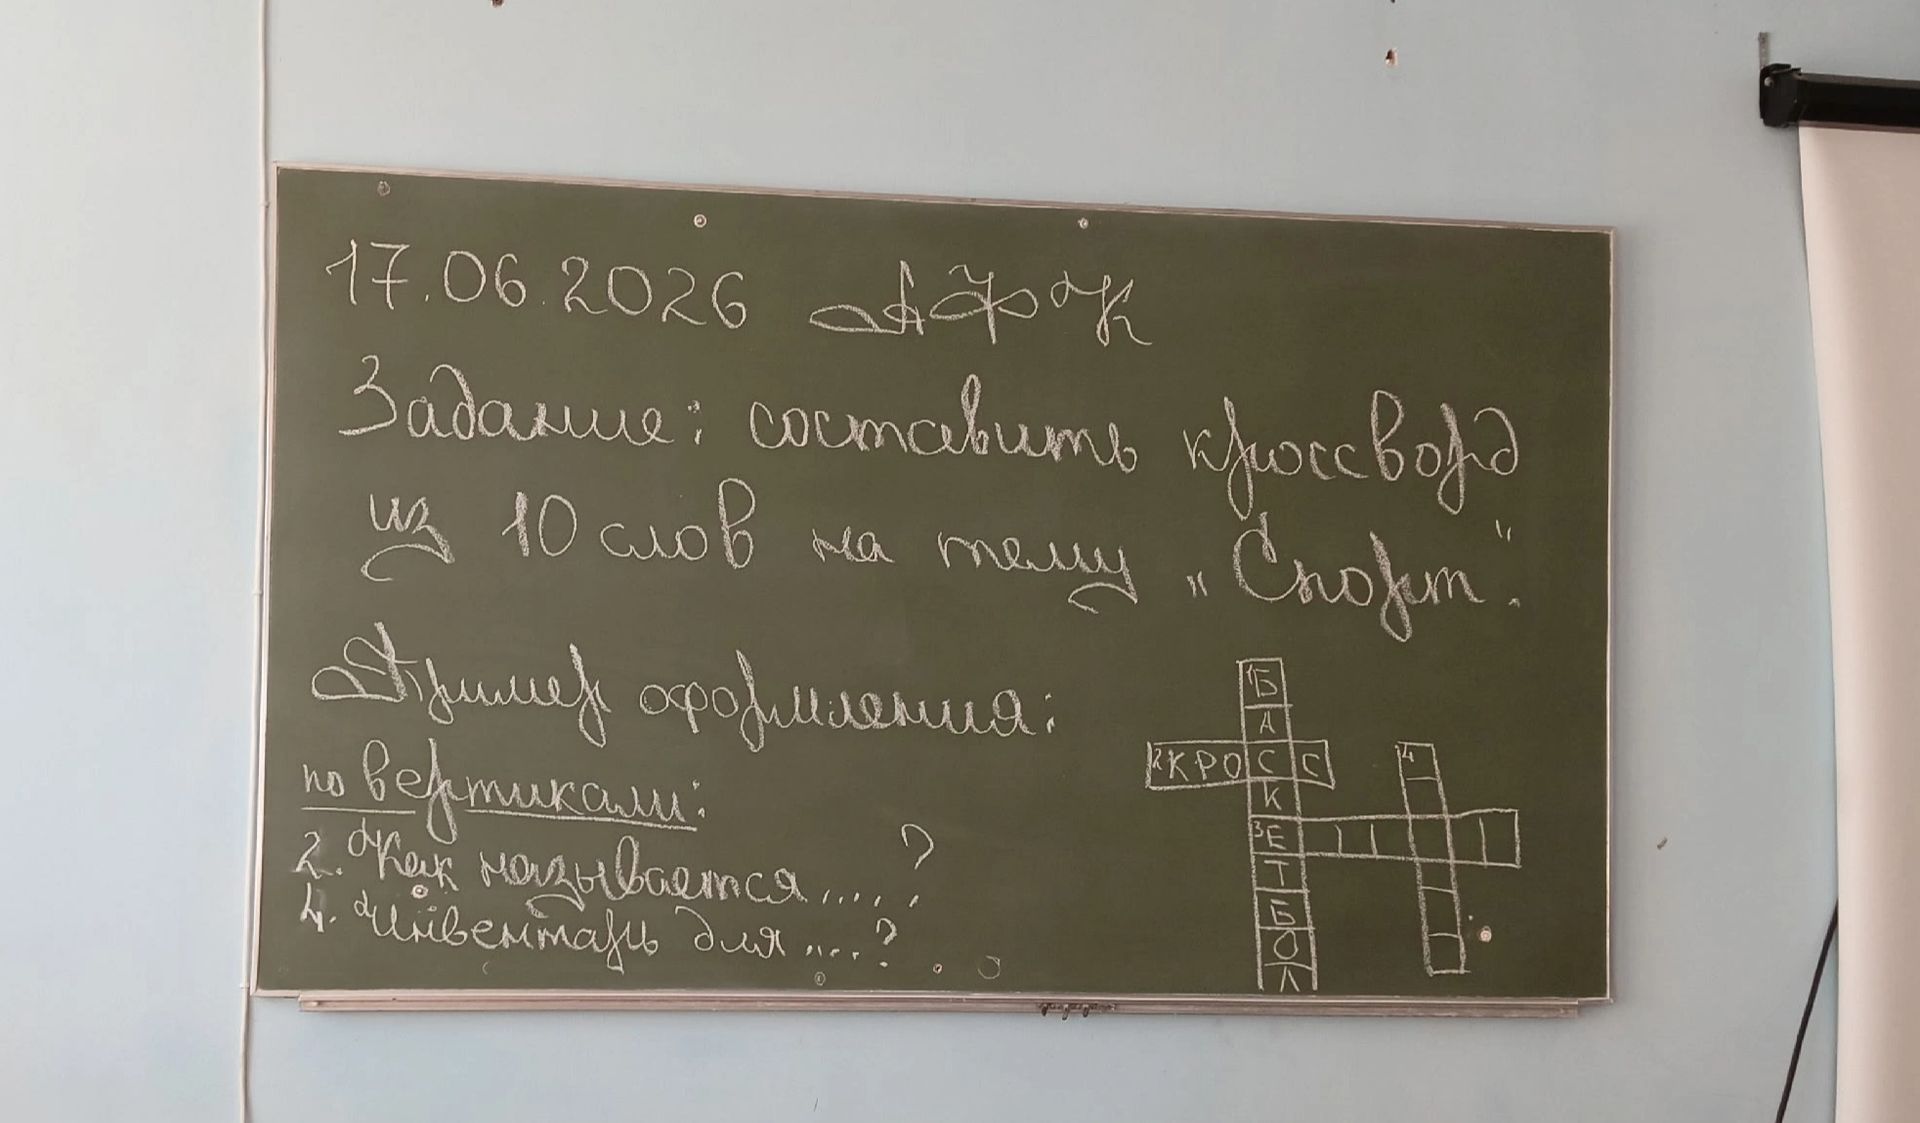 17.06.2026 АФК
Задание: составить кроссворд
из 10 слов на тему „Спорт".
Пример оформления:
по вертикали:
2. Как называется.....?
4. Инвентарь для ....?
1Б
А
2КРОСС
4
К
3Е
Т
Б
О
Л